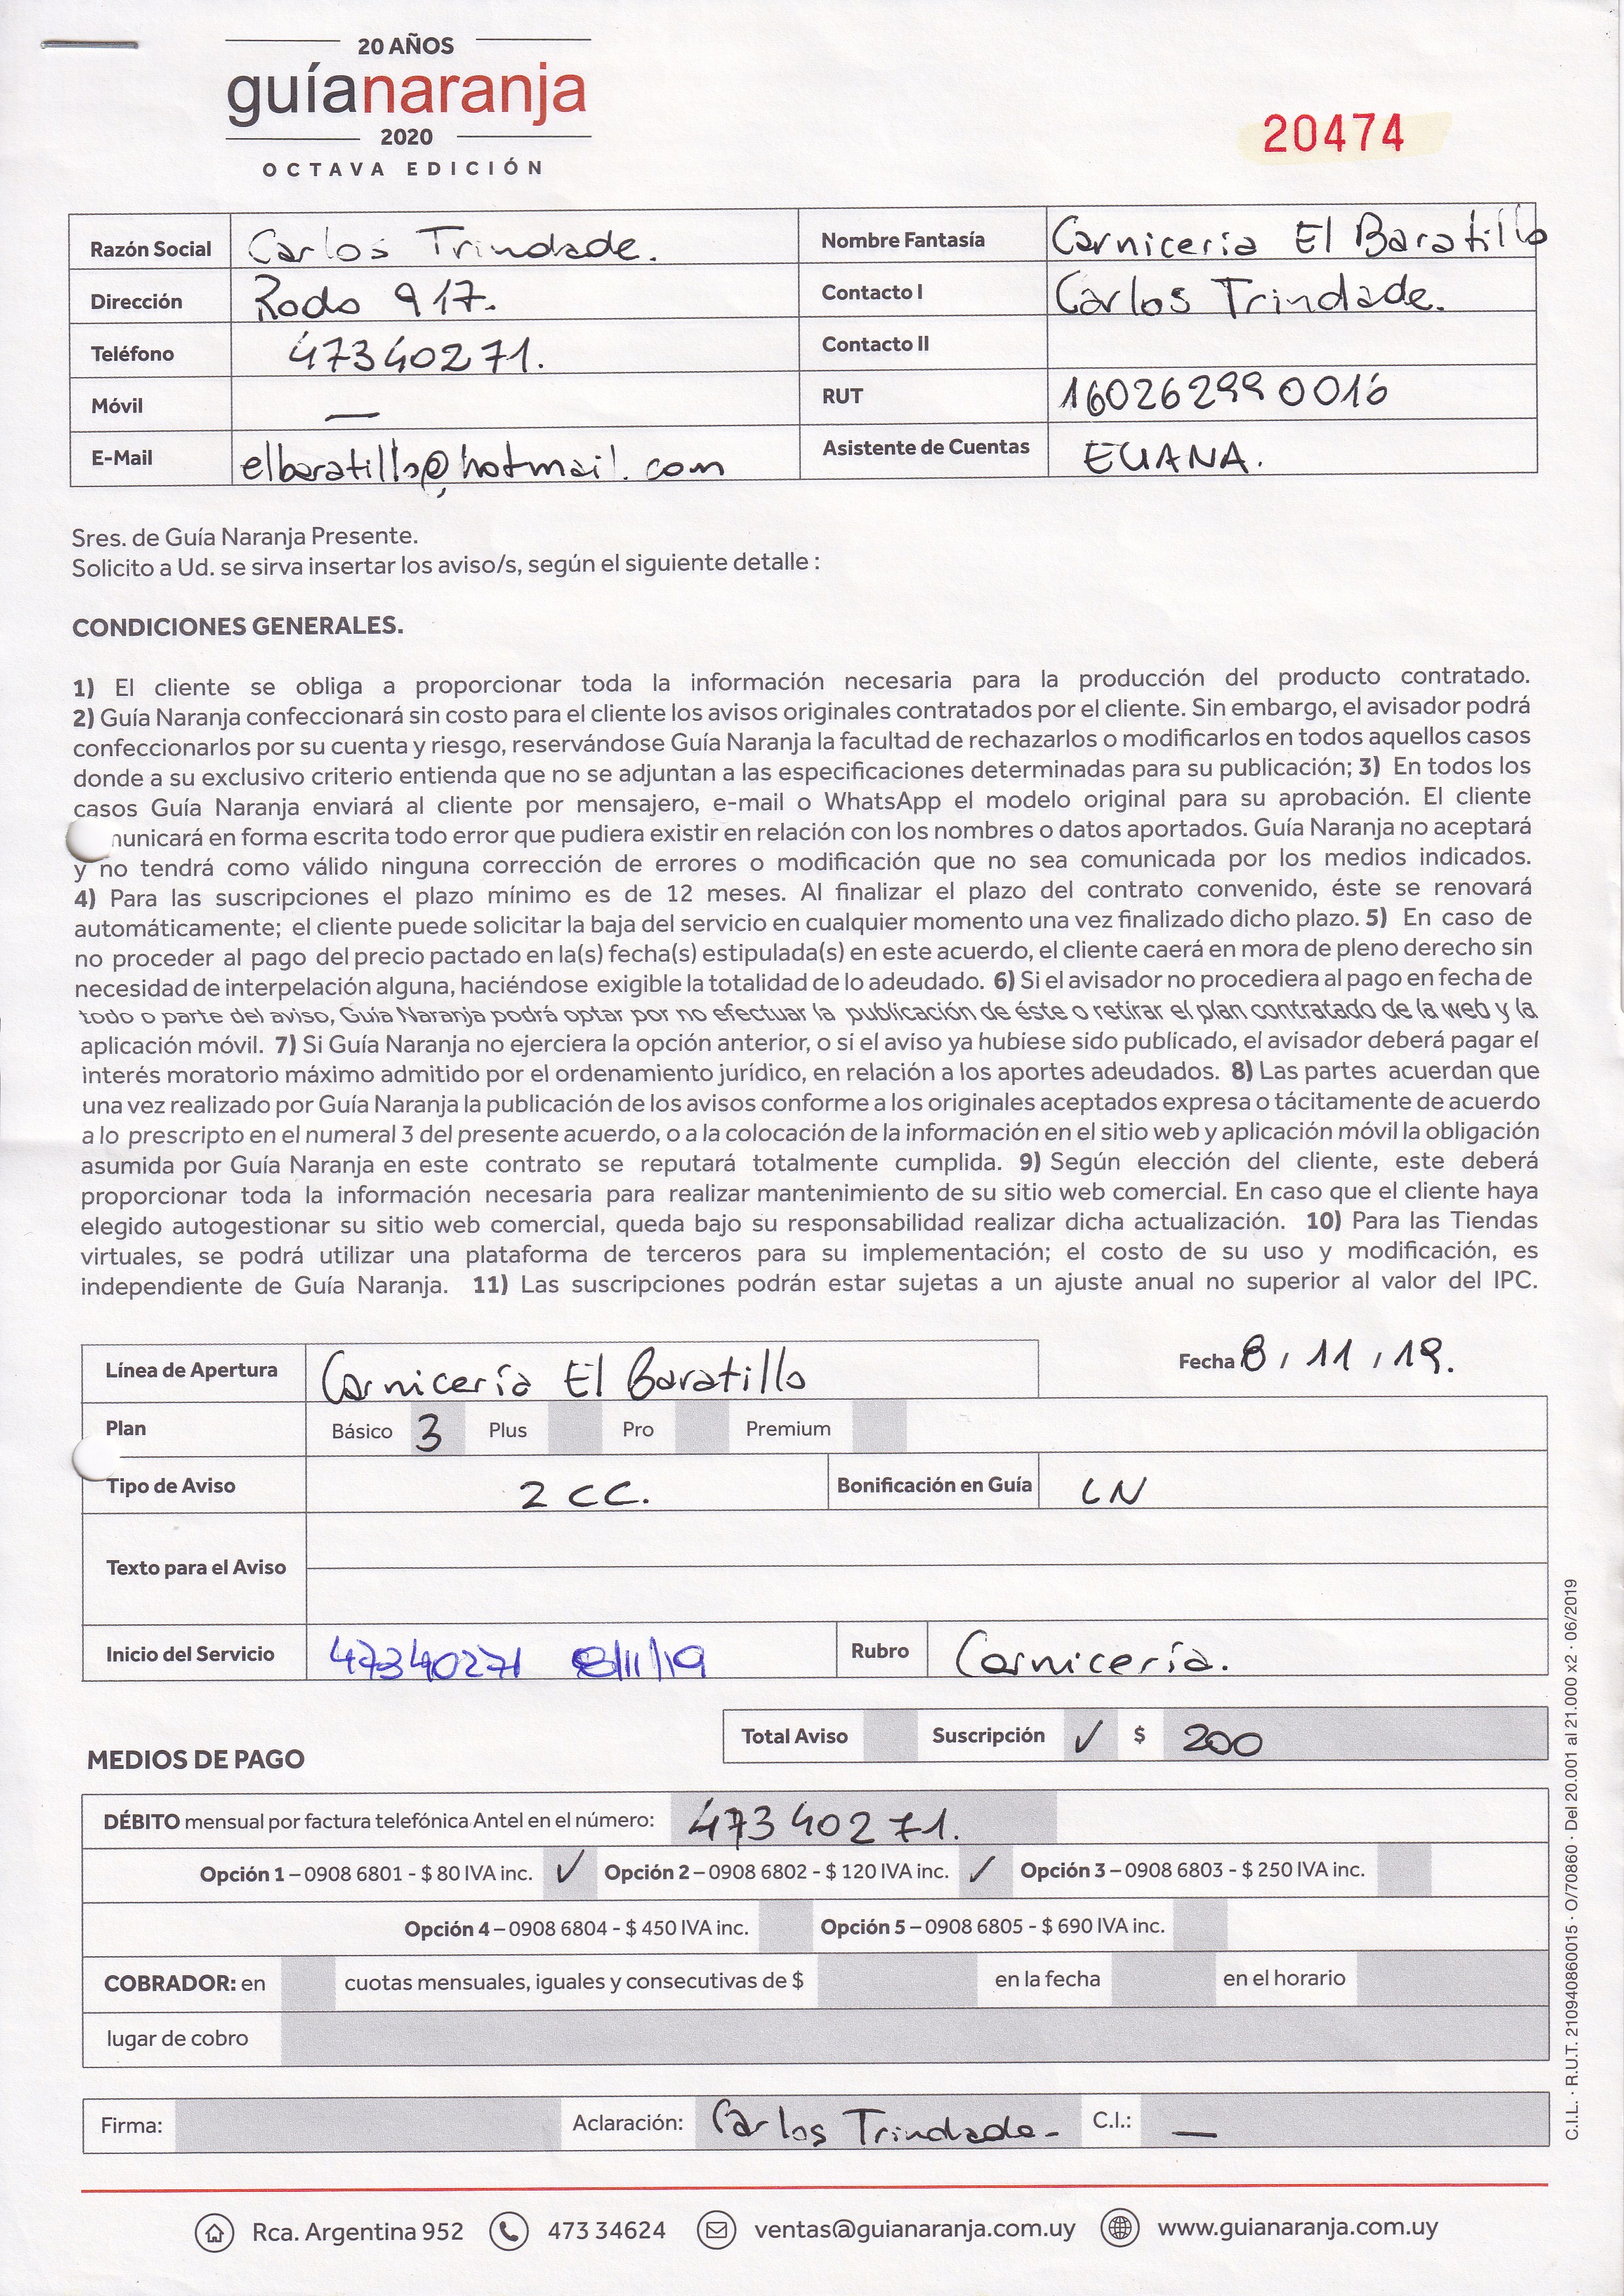 20 AÑOS
guíanaranja
2020
OCTAVA EDICIÓN
20474
Razón Social Carlos Trindade. Nombre Fantasía Carniceria El Baratillo
Dirección Rodo 917. Contacto I Carlos Trindade.
Teléfono 47340271. Contacto II
Móvil — RUT 160262990016
E-Mail elbaratillo@hotmail.com Asistente de Cuentas ELIANA.
Sres. de Guía Naranja Presente.
Solicito a Ud. se sirva insertar los aviso/s, según el siguiente detalle :
CONDICIONES GENERALES.
1) El cliente se obliga a proporcionar toda la información necesaria para la producción del producto contratado.
2) Guía Naranja confeccionará sin costo para el cliente los avisos originales contratados por el cliente. Sin embargo, el avisador podrá
confeccionarlos por su cuenta y riesgo, reservándose Guía Naranja la facultad de rechazarlos o modificarlos en todos aquellos casos
donde a su exclusivo criterio entienda que no se adjuntan a las especificaciones determinadas para su publicación; 3) En todos los
casos Guía Naranja enviará al cliente por mensajero, e-mail o WhatsApp el modelo original para su aprobación. El cliente
municará en forma escrita todo error que pudiera existir en relación con los nombres o datos aportados. Guía Naranja no aceptará
y no tendrá como válido ninguna corrección de errores o modificación que no sea comunicada por los medios indicados.
4) Para las suscripciones el plazo mínimo es de 12 meses. Al finalizar el plazo del contrato convenido, éste se renovará
automáticamente; el cliente puede solicitar la baja del servicio en cualquier momento una vez finalizado dicho plazo. 5) En caso de
no proceder al pago del precio pactado en la(s) fecha(s) estipulada(s) en este acuerdo, el cliente caerá en mora de pleno derecho sin
necesidad de interpelación alguna, haciéndose exigible la totalidad de lo adeudado. 6) Si el avisador no procediera al pago en fecha de
todo o parte del aviso, Guía Naranja podrá optar por no efectuar la publicación de éste o retirar el plan contratado de la web y la
aplicación móvil. 7) Si Guía Naranja no ejerciera la opción anterior, o si el aviso ya hubiese sido publicado, el avisador deberá pagar el
interés moratorio máximo admitido por el ordenamiento jurídico, en relación a los aportes adeudados. 8) Las partes acuerdan que
una vez realizado por Guía Naranja la publicación de los avisos conforme a los originales aceptados expresa o tácitamente de acuerdo
a lo prescripto en el numeral 3 del presente acuerdo, o a la colocación de la información en el sitio web y aplicación móvil la obligación
asumida por Guía Naranja en este contrato se reputará totalmente cumplida. 9) Según elección del cliente, este deberá
proporcionar toda la información necesaria para realizar mantenimiento de su sitio web comercial. En caso que el cliente haya
elegido autogestionar su sitio web comercial, queda bajo su responsabilidad realizar dicha actualización. 10) Para las Tiendas
virtuales, se podrá utilizar una plataforma de terceros para su implementación; el costo de su uso y modificación, es
independiente de Guía Naranja. 11) Las suscripciones podrán estar sujetas a un ajuste anual no superior al valor del IPC.
Línea de Apertura Carnicería El Baratillo Fecha 8 / 11 / 19.
Plan Básico 3 Plus Pro Premium
Tipo de Aviso 2 CC. Bonificación en Guía LN
Texto para el Aviso
Inicio del Servicio 47340271 8/11/19 Rubro Carnicería.
Total Aviso Suscripción ✓ $ 200
MEDIOS DE PAGO
DÉBITO mensual por factura telefónica Antel en el número: 473 40271.
Opción 1 – 0908 6801 - $ 80 IVA inc. ✓ Opción 2 – 0908 6802 - $ 120 IVA inc. ✓ Opción 3 – 0908 6803 - $ 250 IVA inc.
Opción 4 – 0908 6804 - $ 450 IVA inc. Opción 5 – 0908 6805 - $ 690 IVA inc.
COBRADOR: en cuotas mensuales, iguales y consecutivas de $ en la fecha en el horario
lugar de cobro
Firma: Aclaración: Carlos Trindade- C.I.: —
Rca. Argentina 952 473 34624 ventas@guianaranja.com.uy www.guianaranja.com.uy
C.I.L. · R.U.T. 210940860015 · O/70860 · Del 20.001 al 21.000 x2 · 06/2019